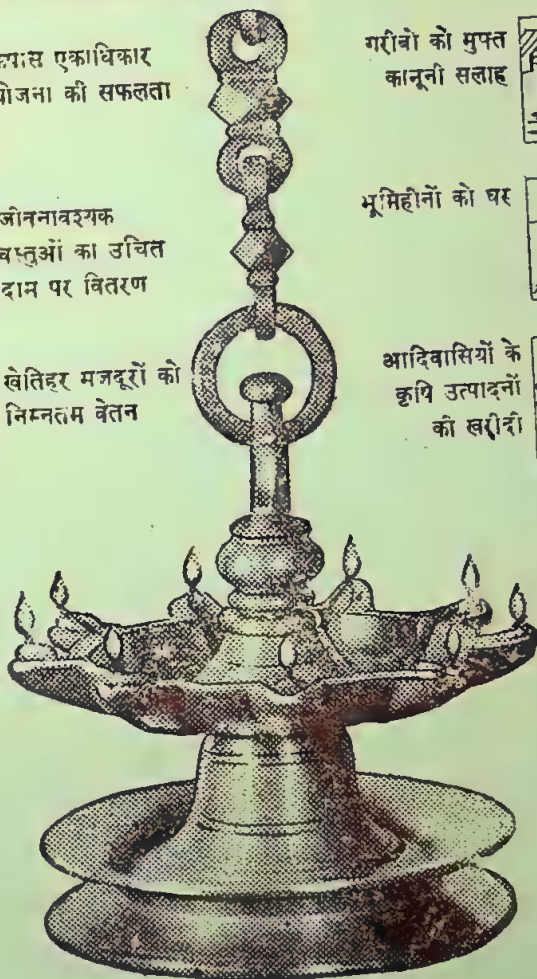 एकाधिकार
की सफलता
जीवनावश्यक
वस्तुओं का उचित
दाम पर वितरण
खेतिहर मजदूरों को
निम्नतम वेतन
गरीबों को मुफ्त
कानूनी सलाह
भूमिहीनों को घर
आदिवासियों के
कृषि उत्पादनों
की खरीदी